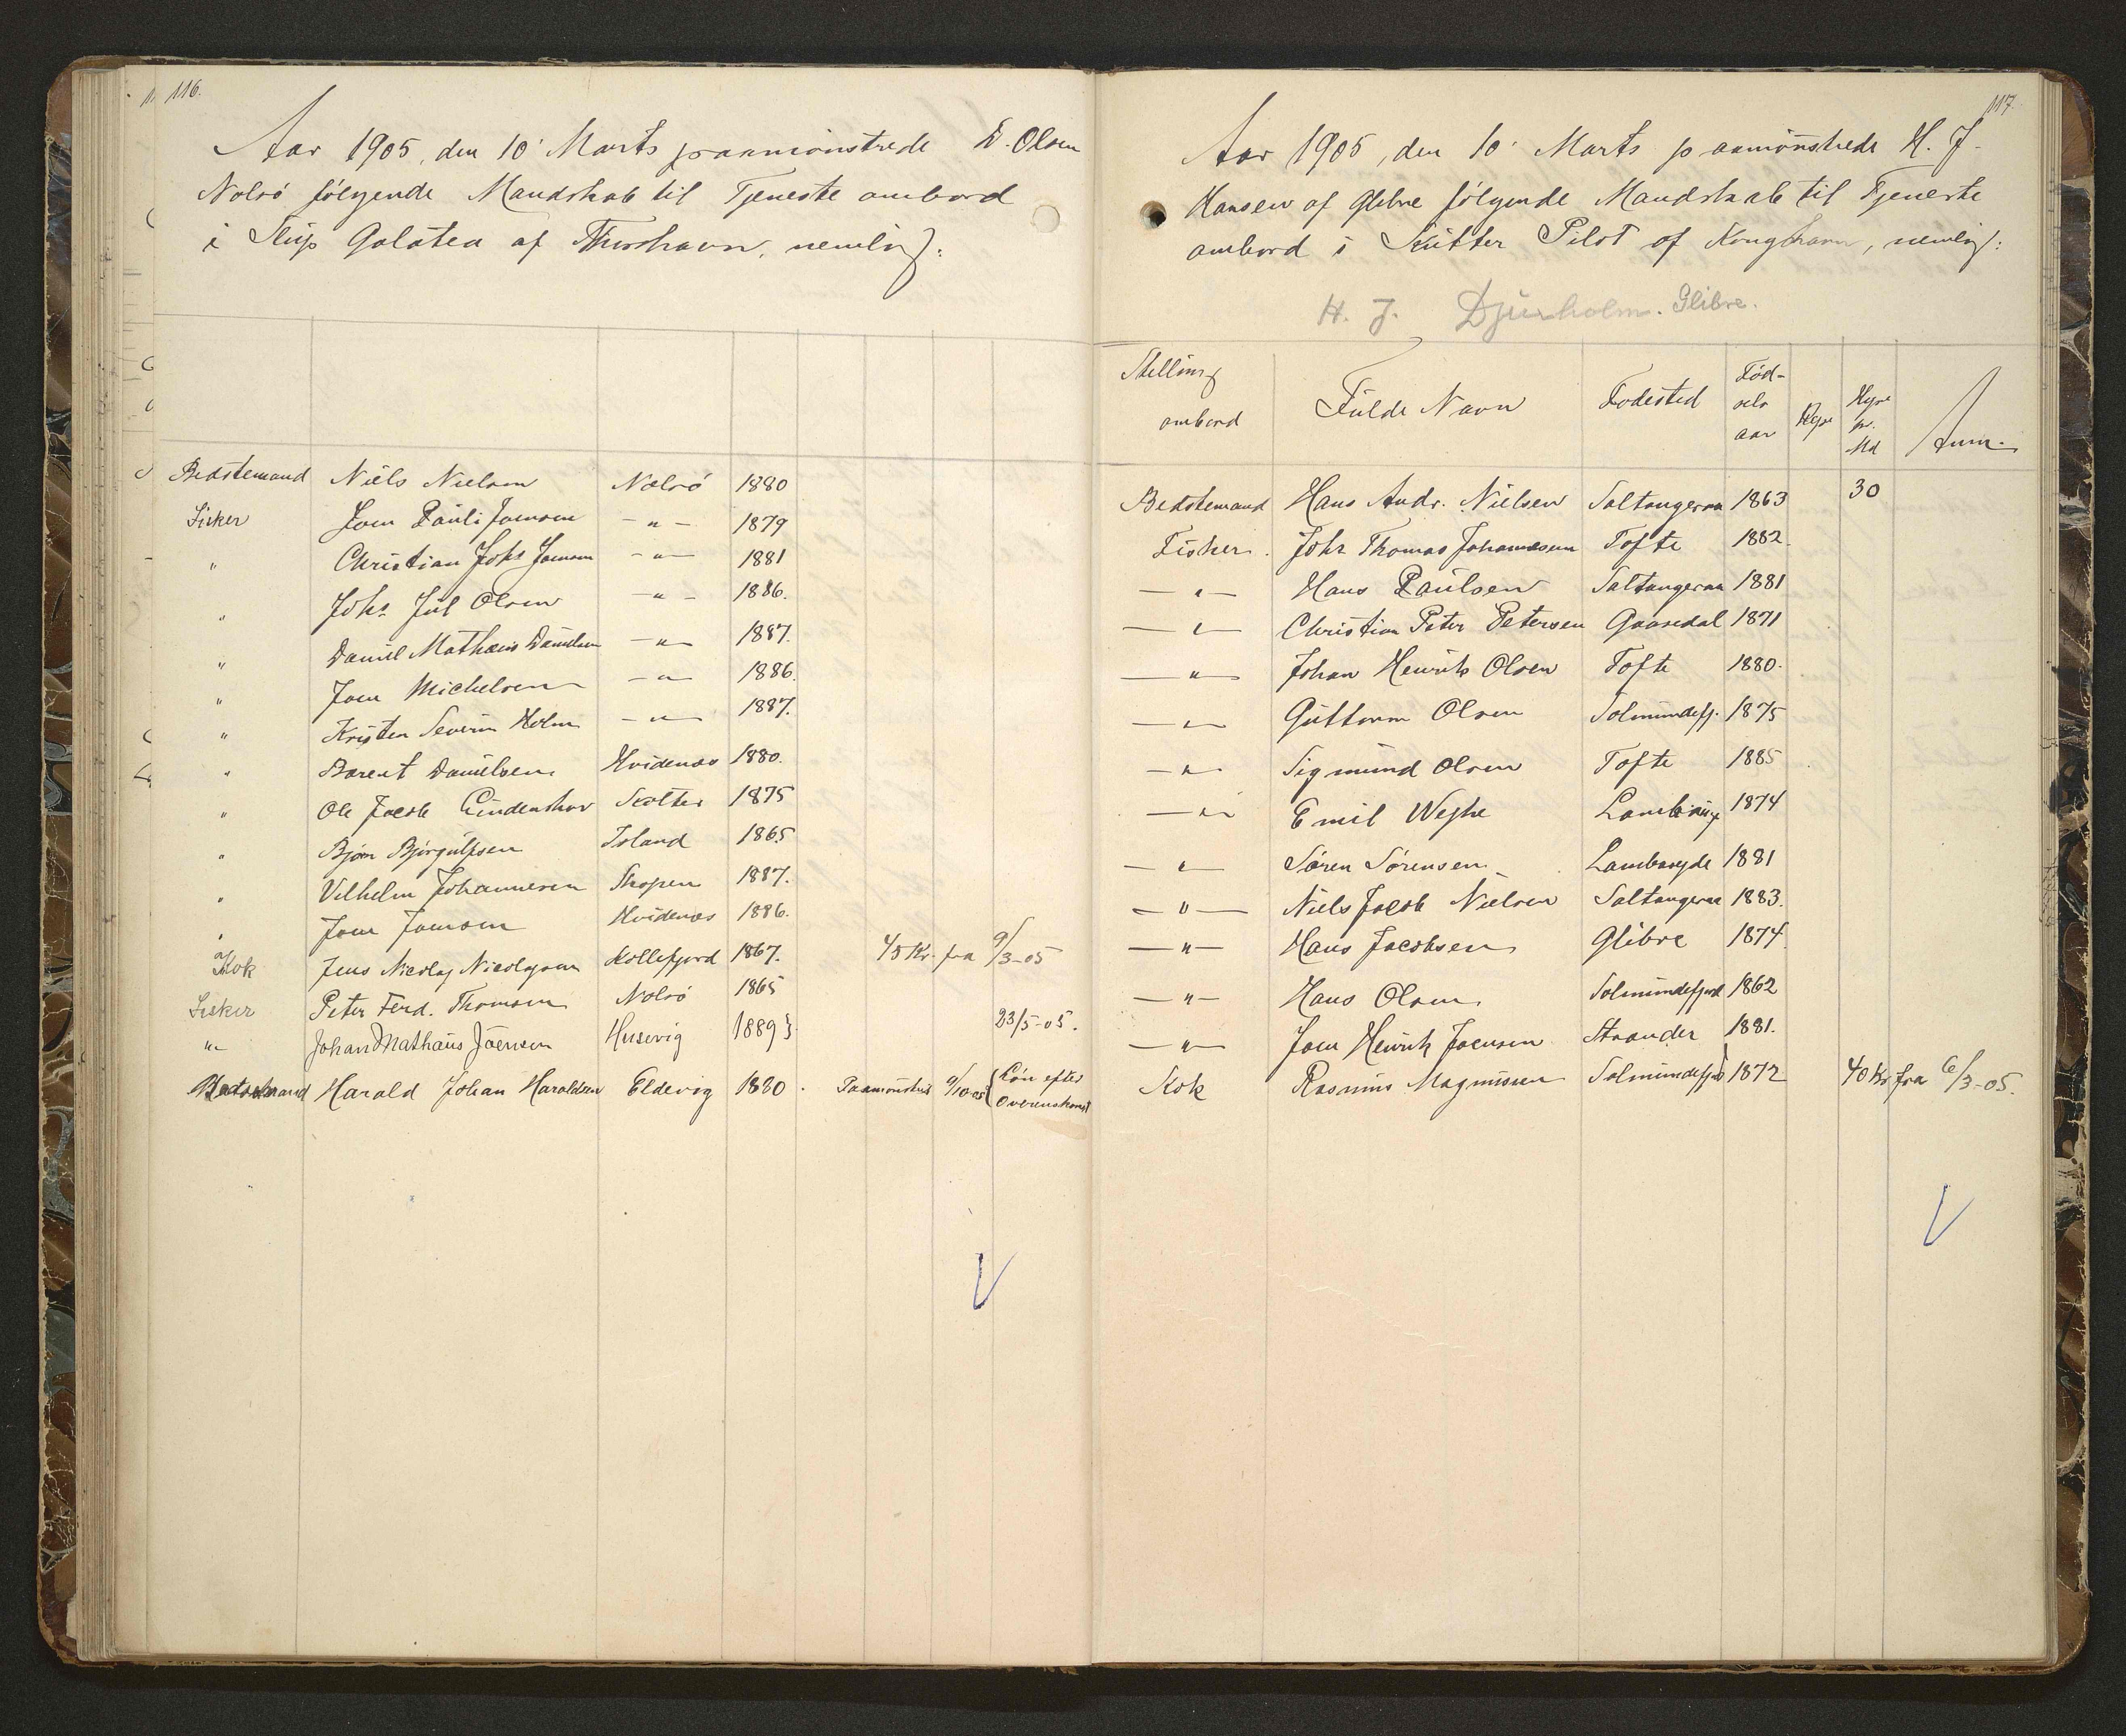 116.
Aar 1905, den 10' Marts paamönstrede D. Olsen
Nolsö fölgende Mandskab til Tjeneste ombord
i Slup Galatea af Thorshavn, nemlig:
Bedstemand Niels Nielsen Nolsö 1880
Fisker Joen Pauli Joensen -"- 1879
" Christian Johs Joensen -"- 1881
" Johs Jul Olsen -"- 1886.
" Daniel Mathæus Danielsen -"- 1887.
" Joen Michelsen -"- 1886.
" Kristen Severin Holm -"- 1887.
" Barent Danielsen Hvidenæs 1880.
" Ole Jacob Lindenskov Skoltter 1875
" Bjørn Björgulfsen Island 1865
" Vilhelm Johannesen Skopen 1887.
" Joen Joensen Hvidenæs 1886.
Kok Jens Nicolaj Nicolajsen Kollefjord 1867. 45 Kr. fra 9/3-05
Fisker Peter Ferd. Thomsen Nolsö 1865
"- Johan Mathæus Joensen Husevig 1889 23/5-05.
Bedstemand Harald Johan Haraldsen Eldevig 1880. Paamönstret 9/10-05 Lön efter
Overenskomst
117.
Aar 1905, den 10' Marts paamönstrede H. J.
Hansen af Glibre fölgende Mandskab til Tjeneste
ombord i Kutter Pilot af Kongshavn, nemlig:
H. J. Djurholm. Glibre.
Stilling
ombord
Fulde Navn
Fodested
Föd-
sels
aar
Hyre
Hyre
pr.
Md
Anm.
Bedstemand Hans Andr. Nielsen Saltangeraa 1863 30
Fisker. Johs Thomas Johannesen Tofte 1882.
-"- Hans Paulsen Saltangeraa 1881
-"- Christian Peter Petersen Gaasedal 1871
-"- Johan Henrik Olsen Tofte 1880.
-"- Guttorm Olsen Solmundefj. 1875
-"- Sigmund Olsen Tofte 1885
-"- Emil Weyhe Lambavig 1874
-"- Sören Sörensen Lambareyde 1881
-"- Niels Jacob Nielsen Saltangeraa 1883.
-"- Hans Jacobsen Glibre 1874.
-"- Hans Olsen Solmundefjord 1862
-"- Joen Henrik Joensen Strander 1881.
Kok Rasmus Magnussen Solmundefjord 1872 40 Kr. fra 6/3-05.